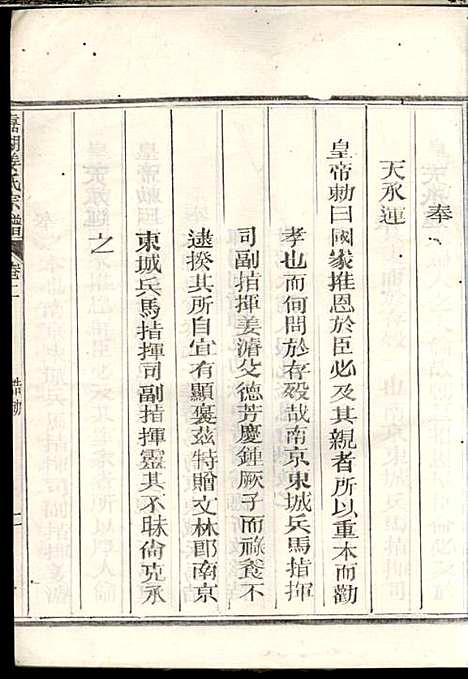 奉
天承運
皇帝勅曰國家推恩於臣必及其親者所以重本而勸
孝也而何間於存歿哉南京東城兵馬指揮
司副指揮姜濬父德芳慶鍾厥子而祿養不
逮揆其所自宜有顯褒茲特贈文林郎南京
東城兵馬指揮司副指揮靈其不昧尚克承
之
姜氏宗譜
卷二
誥勅